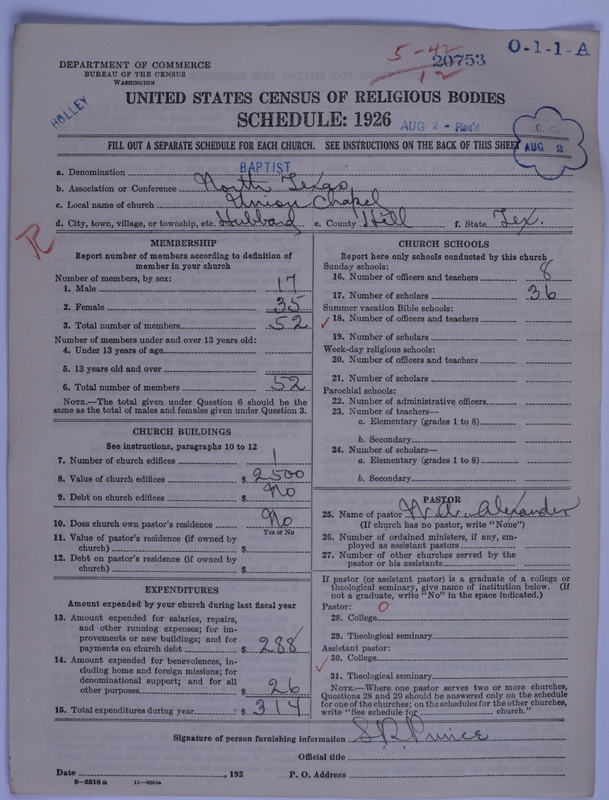 5-42
12
20753
O-1-1-A
DEPARTMENT OF COMMERCE
BUREAU OF THE CENSUS
WASHINGTON
HOLLEY
UNITED STATES CENSUS OF RELIGIOUS BODIES
SCHEDULE: 1926
AUG 2 - Rec'd
FILL OUT A SEPARATE SCHEDULE FOR EACH CHURCH. SEE INSTRUCTIONS ON THE BACK OF THIS SHEET
AUG 2
a. Denomination BAPTIST
b. Association or Conference North Texas
c. Local name of church Union Chapel
d. City, town, village, or township, etc. Hubbard e. County Hill f. State Tex.
R
MEMBERSHIP
Report number of members according to definition of
member in your church
Number of members, by sex:
1. Male 17
2. Female 35
3. Total number of members 52
Number of members under and over 13 years old:
4. Under 13 years of age
5. 13 years old and over
6. Total number of members 52
NOTE.—The total given under Question 6 should be the
same as the total of males and females given under Question 3.
CHURCH BUILDINGS
See instructions, paragraphs 10 to 12
7. Number of church edifices 1
8. Value of church edifices $ 2500
9. Debt on church edifices $ No
10. Does church own pastor's residence No
Yes or No
11. Value of pastor's residence (if owned by
church) $
12. Debt on pastor's residence (if owned by
church) $
EXPENDITURES
Amount expended by your church during last fiscal year
13. Amount expended for salaries, repairs,
and other running expenses; for im-
provements or new buildings; and for
payments on church debt $ 288
14. Amount expended for benevolences, in-
cluding home and foreign missions; for
denominational support; and for all
other purposes $ 26
15. Total expenditures during year $ 314
CHURCH SCHOOLS
Report here only schools conducted by this church
Sunday schools:
16. Number of officers and teachers 8
17. Number of scholars 36
Summer vacation Bible schools:
18. Number of officers and teachers
19. Number of scholars
Week-day religious schools:
20. Number of officers and teachers
21. Number of scholars
Parochial schools:
22. Number of administrative officers
23. Number of teachers—
a. Elementary (grades 1 to 8)
b. Secondary
24. Number of scholars—
a. Elementary (grades 1 to 8)
b. Secondary
PASTOR
25. Name of pastor W. A. Alexander
(If church has no pastor, write "None")
26. Number of ordained ministers, if any, em-
ployed as assistant pastors
27. Number of other churches served by the
pastor or his assistants
If pastor (or assistant pastor) is a graduate of a college or
theological seminary, give name of institution below. (If
not a graduate, write "No" in the space indicated.)
Pastor: O
28. College
29. Theological seminary
Assistant pastor:
30. College
31. Theological seminary
NOTE.—Where one pastor serves two or more churches,
Questions 28 and 29 should be answered only on the schedule
for one of the churches; on the schedules for the other churches,
write "See schedule for church."
Signature of person furnishing information S R Prince
Official title
Date , 192 P. O. Address